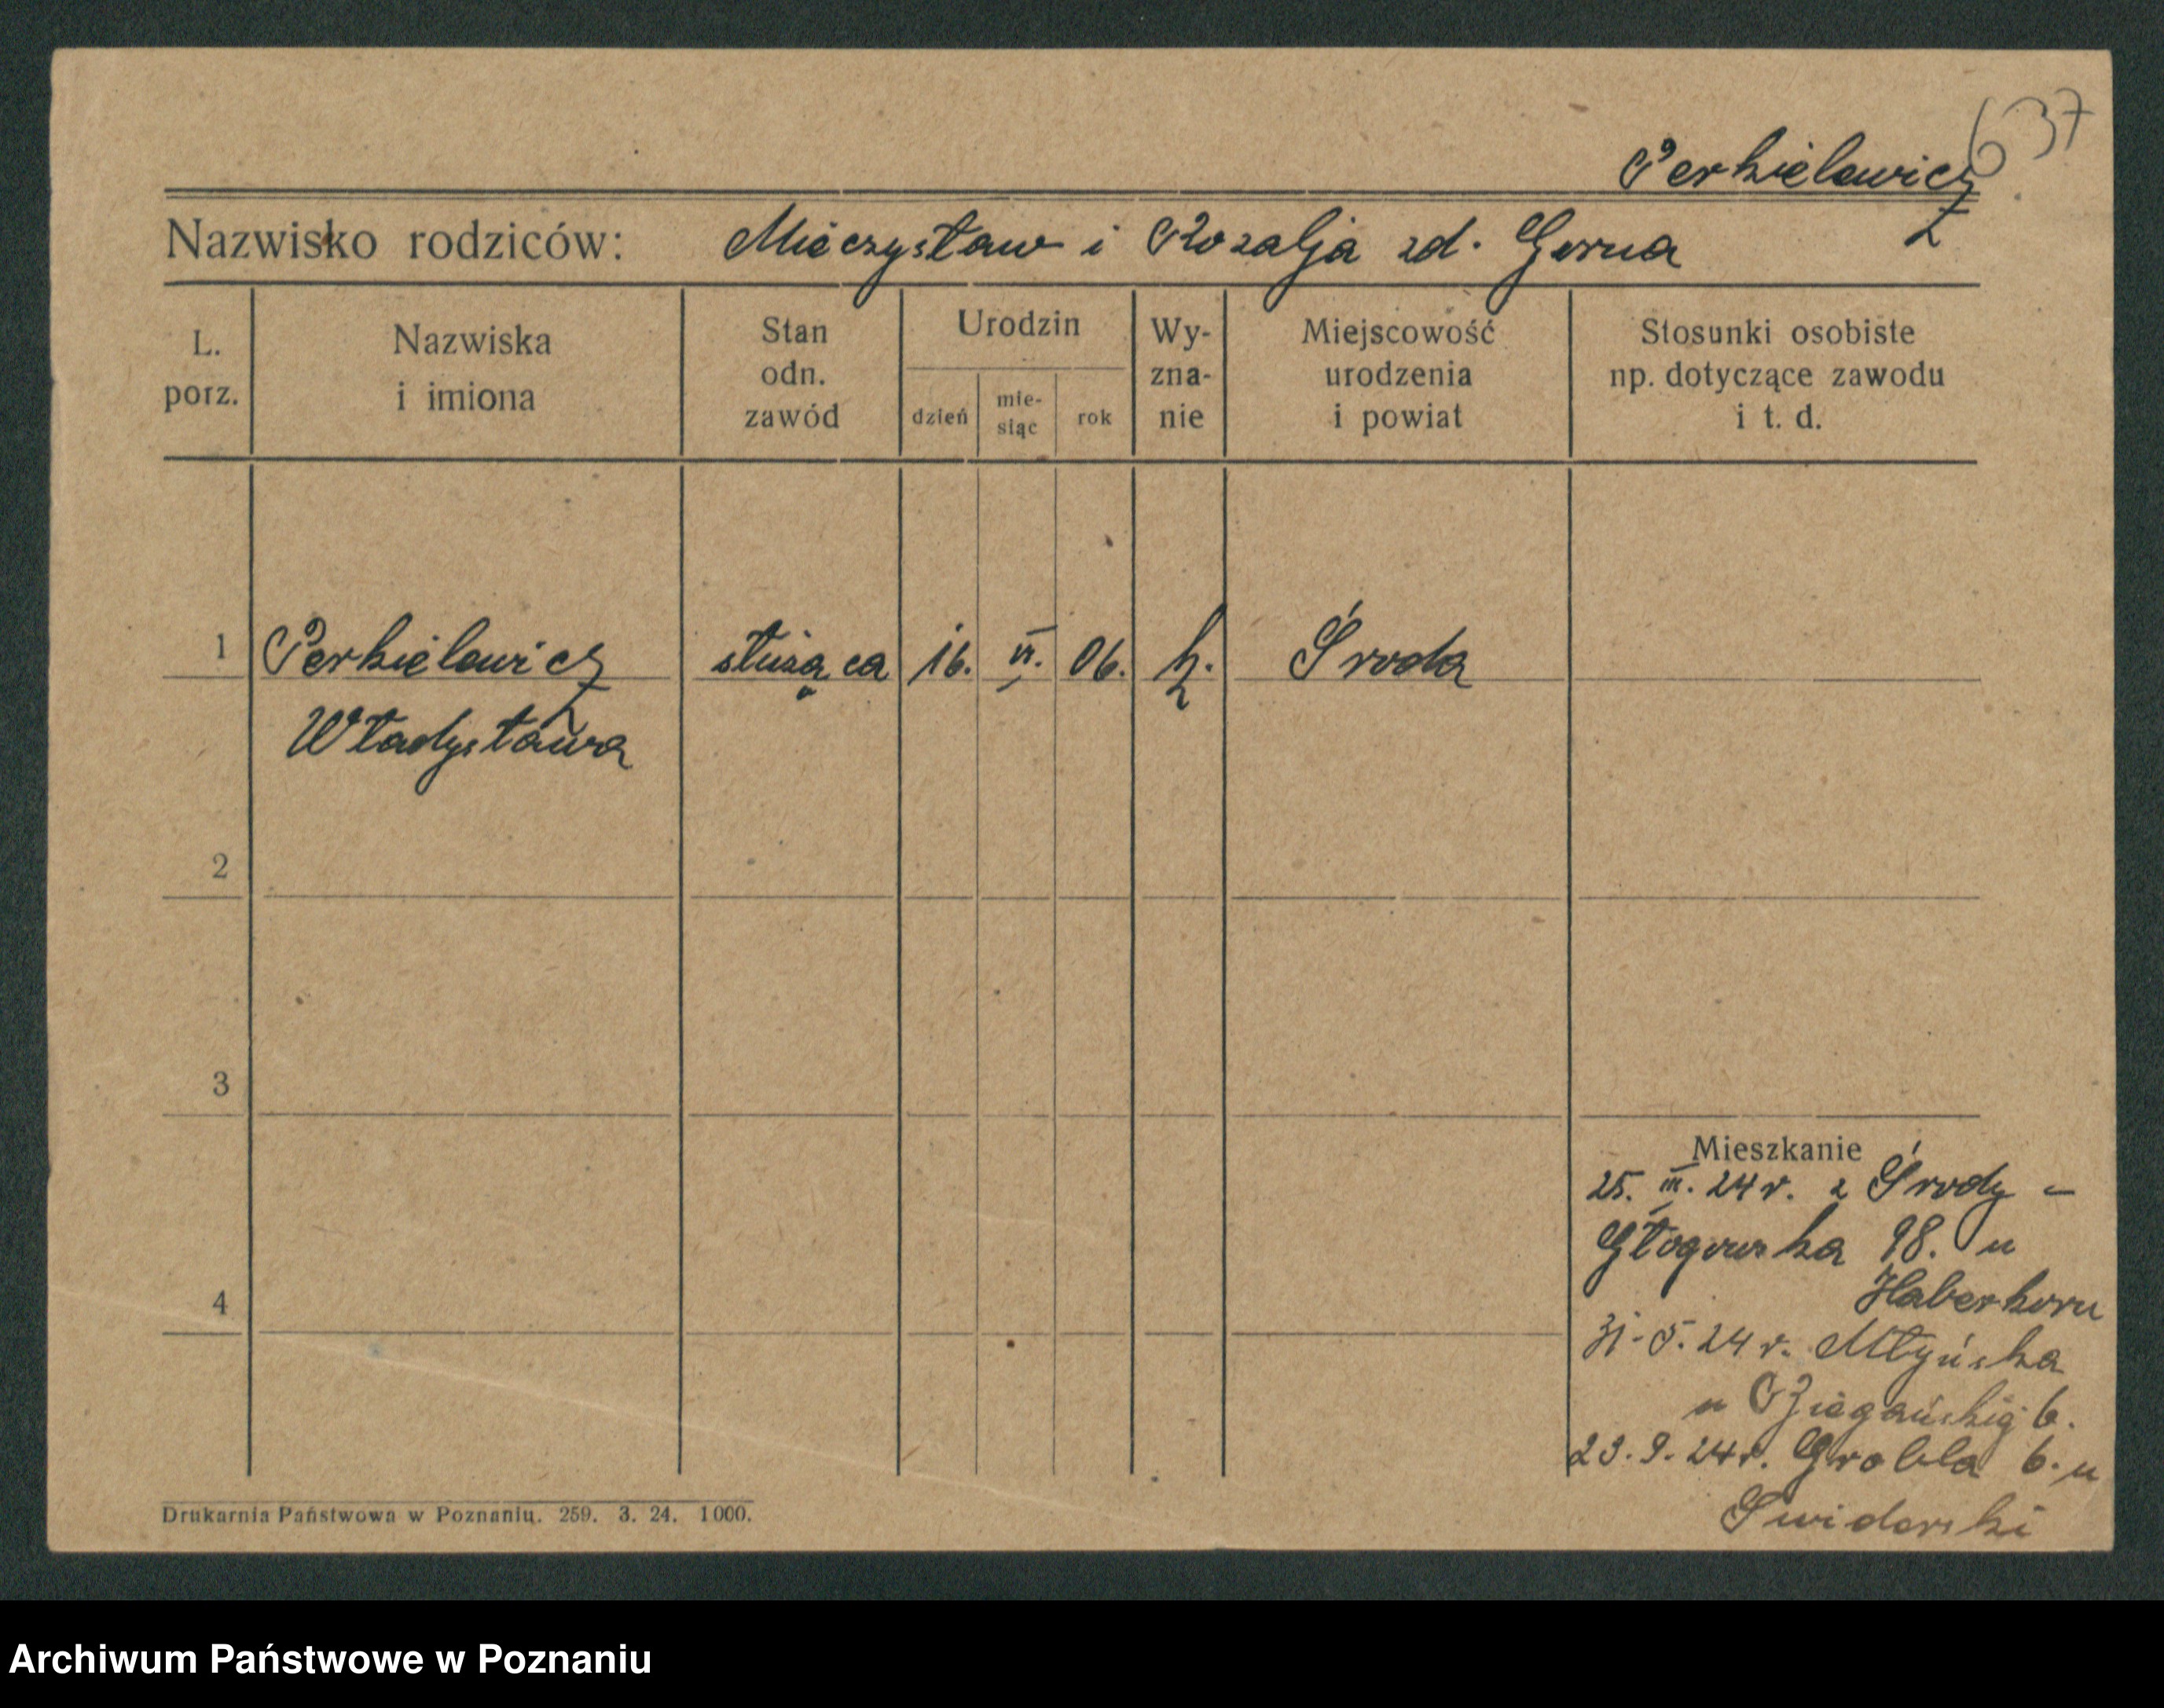 637
Perkielewicz
Nazwisko rodziców: Mieczysław i Rozalja zd. Gorna
L. porz.
Nazwiska i imiona
Stan odn. zawód
Urodzin
dzień
mie-siąc
rok
Wy-zna-nie
Miejscowość urodzenia i powiat
Stosunki osobiste np. dotyczące zawodu i t. d.
1 Perkielewicz służąca 16. VI. 06. k. Środa
Władysława
2
3
4
Mieszkanie
25. III. 24 r. z Środy –
Głogowska 98. u
Haberkorn
31-5. 24 r. Młyńska
u 6.
23. 9. 24 r. Grobla 6. u
Swiderski
Drukarnia Państwowa w Poznaniu. 259. 3. 24. 1000.
Archiwum Państwowe w Poznaniu